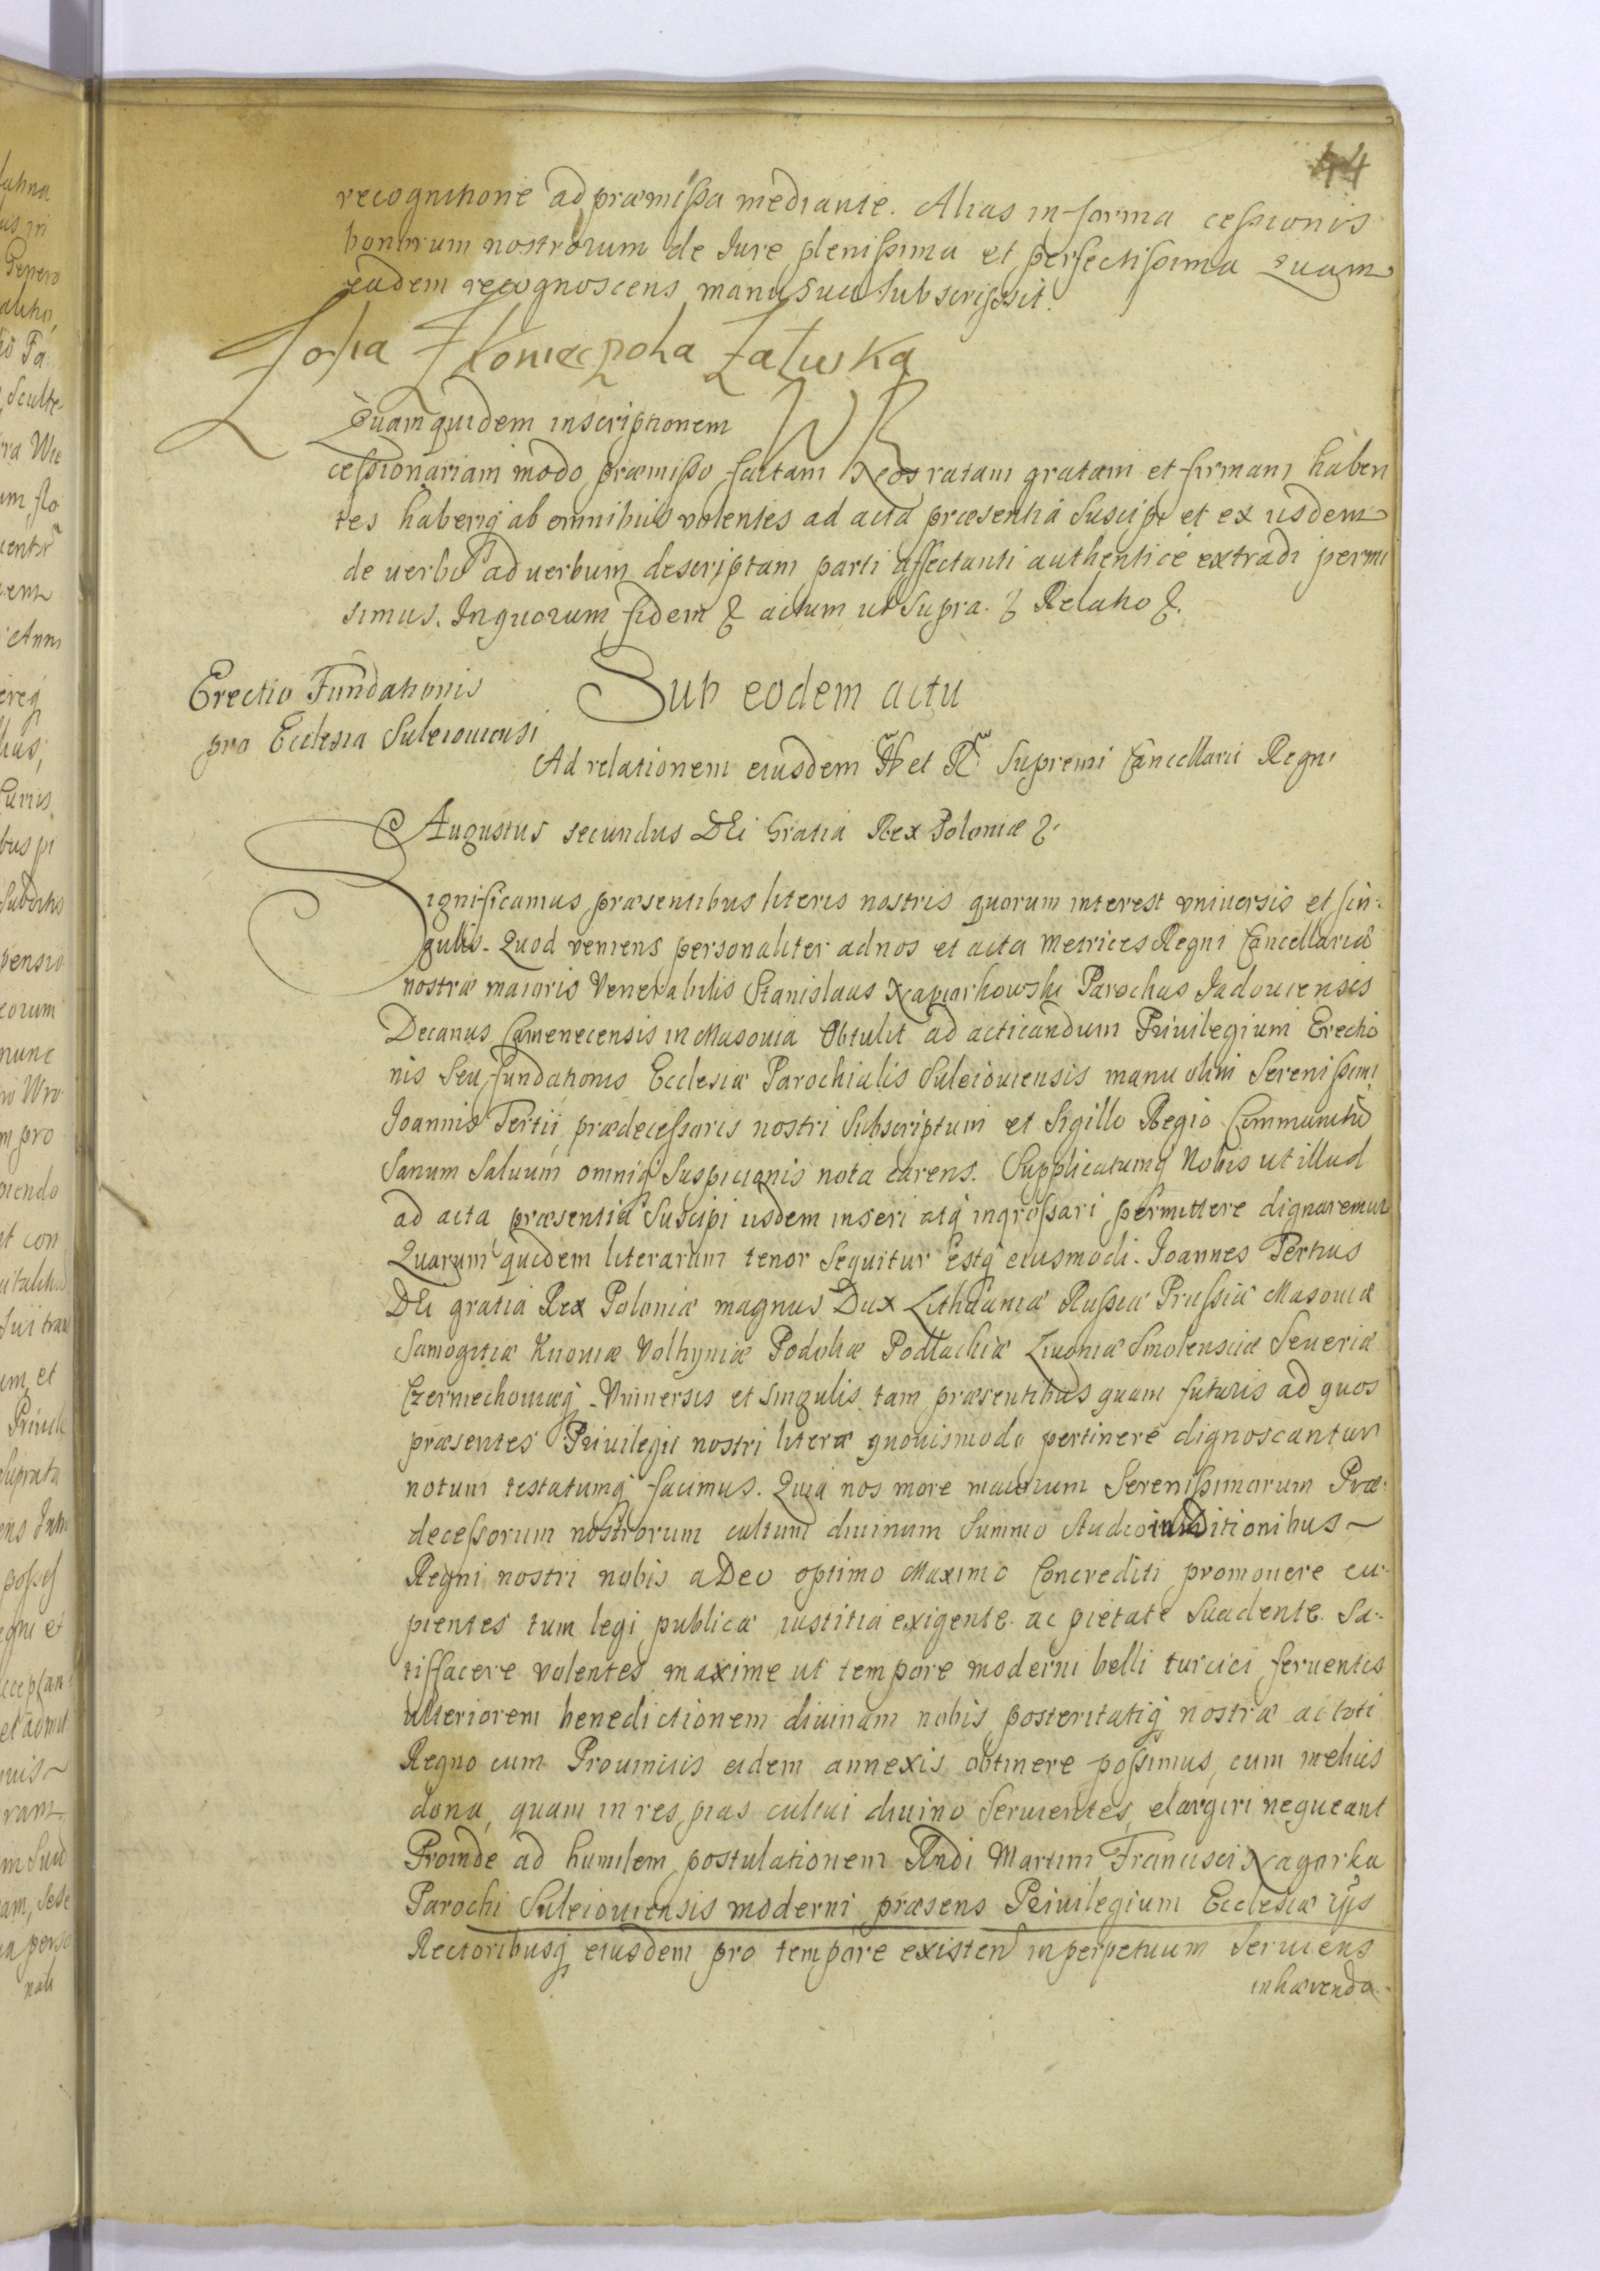 44
recognitione ad præmissa mediante. Alias in forma cessionis
bonorum nostrorum de Iure plenissima et perfectissima Quam
eadem recognoscens manu sua subscripsit.
Zofia z Koniecpola Załuska
Quamquidem inscriptionem WK
cessionariam modo præmisso factam Nos ratam gratam et firmam haben
tes haberiq ab omnibus volentes ad acta præsentia suscipi et ex iisdem
de verbo ad verbum descriptam parti affectanti authentice extradi permi
simus. In quorum fidem & actum ut supra. & Relatio &.
Erectio Fundationis
pro Ecclesia Suleiouiensi
Sub eodem actu
Ad relationem eiusdem Ill et R Supremi Cancellarii Regni
Augustus secundus DEi Gratia Rex Poloniæ &.
Significamus præsentibus literis nostris quorum interest vniuersis et sin-
gulis. Quod veniens personaliter ad nos et acta Metrices Regni Cancellariæ
nostræ maioris Venerabilis Stanislaus Parochus Iadouiensis
Decanus Camenecensis in Masouia Obtulit ad acticandum Priuilegium Erectio
nis seu fundationis Ecclesiæ Parochialis Suleiouiensis manu olim Serenissimi
Ioannis Tertii prædecessoris nostri Subscriptum et Sigillo Regio Communitū
Sanum Saluum omniq Suspicionis nota carens. Supplicatumq Nobis ut illud
ad acta præsentia Suscipi iisdem inseri atq ingrossari permittere dignaremur
Quarum quidem literarum tenor sequitur Estq eiusmodi. Ioannes Tertius
DEi gratia Rex Poloniæ magnus Dux Lithuaniæ Russiæ Prussiæ Masouiæ
Samogitiæ Kuouiæ Volhyniæ Podoliæ Podlachiæ Liuoniæ Smolensciæ Seueriæ
Czerniechouiæq. Vniuersis et singulis tam præsentibus quam futuris ad quos
præsentes Priuilegii nostri literæ quouismodo pertinere dignoscantur
notum testatumq facimus. Quia nos more maiorum Serenissimorum Præ-
decessorum nostrorum cultum diuinum summo studio in ditionibus
Regni nostri nobis a Deo optimo Maximo Concrediti promouere cu-
pientes tum legi publicæ iustitia exigente ac pietate suadente. Sa-
tisfacere volentes maxime ut tempore moderni belli turcici feruentis
ulteriorem benedictionem diuinam nobis posteritatiq nostræ ac toti
Regno cum Prouinciis eidem annexis obtinere possimus, cum melius
dona, quam in res pias cultui diuino Seruientes, elargiri nequeant
Proinde ad humilem postulationem Rndi Martini Francisci
Parochi Suleiouiensis moderni præsens Priuilegium Ecclesiæ
Rectoribusq eiusdem pro tempore existen in perpetuum Seruiens
inhærendo